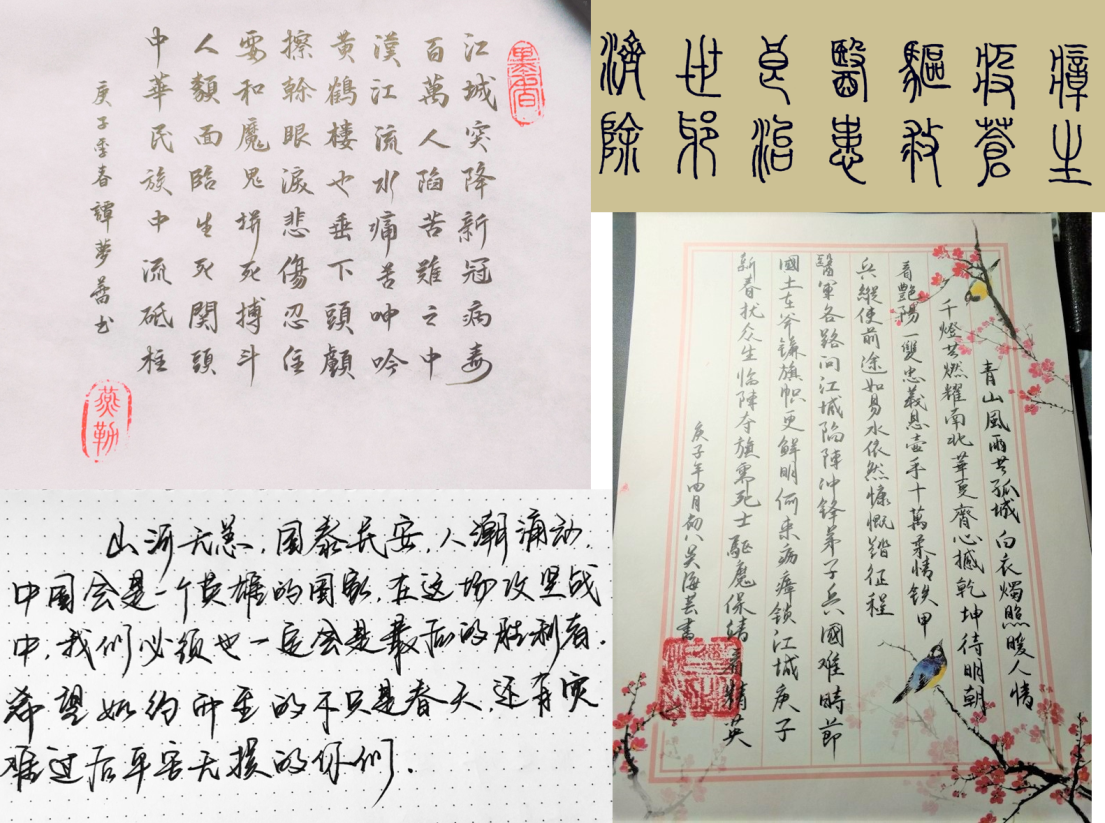 江城突降新冠病毒
百萬人陷苦難之中
漢江流水痛苦呻吟
黃鶴樓也垂下頭顱
擦幹眼淚悲傷忍住
要和魔鬼拼死搏斗
人類面臨生死関頭
中華民族中流砥柱
庚子季春譚夢蕾书
墨香
濟世良醫驅疫瘴
除邪治患救蒼生
青山風雨共孤城 白衣燭照暖人情
千燈共燃耀南北 華夏齊心撼乾坤 待明朝
看艷陽 一雙忠義懸壺手 十萬柔情鉄甲
兵 縱使前途如易水 依然慷慨踏征程
醫軍各路问江城 陷陣冲鋒弟子兵 國难時節
國土在 斧鐮旗幟更鮮明 何来病瘴鎖江城 庚子
新春扰众生 临陣夺旗需死士 驅魔保靖有精英
庚子年四月初八吴海芸書
山河无恙，国泰民安，人潮涌动，
中国会是一个英雄的国家，在这场攻坚战
中，我们必须也一定会是最后的胜利者。
希望如约而至的不只是春天，还有灾
难过后平安无损的你们．